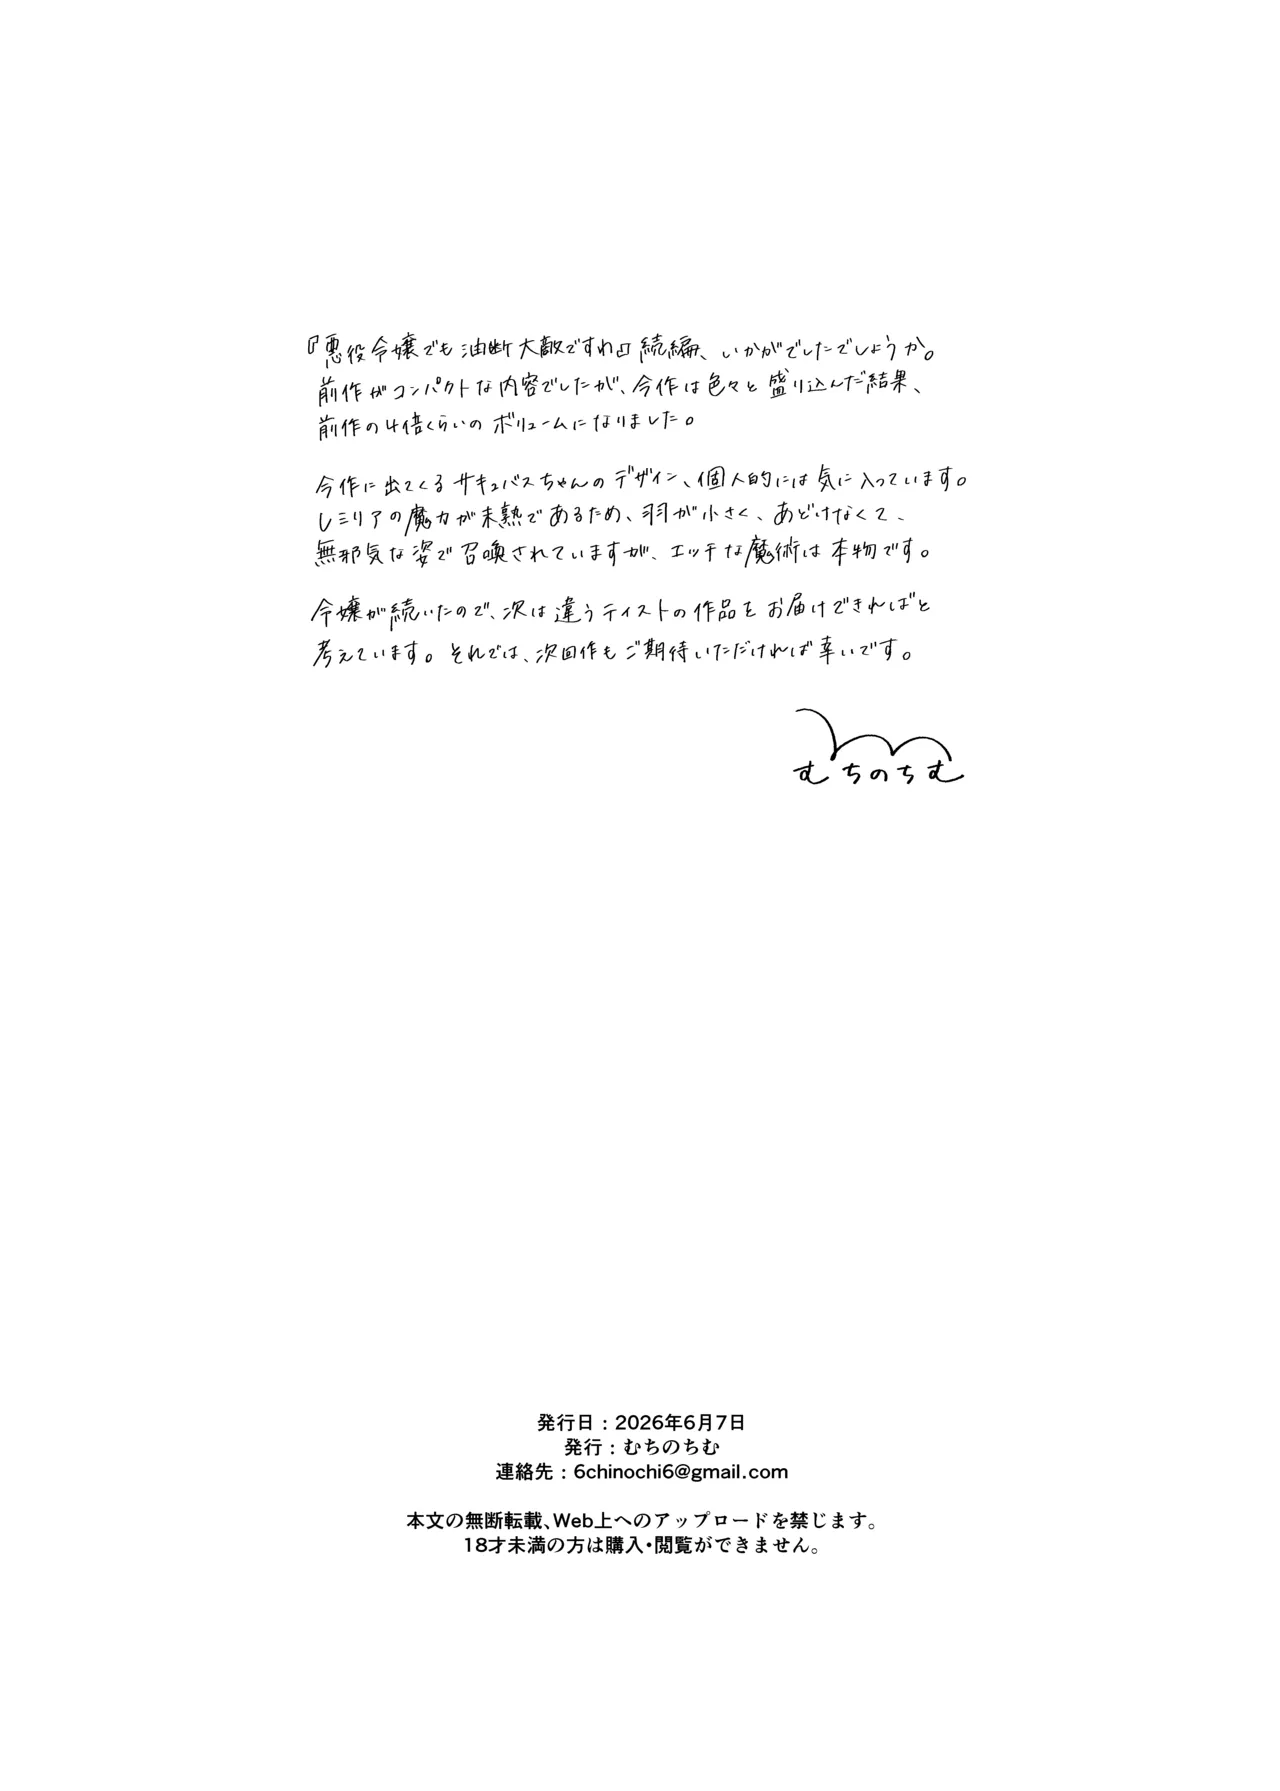 『悪役令嬢でも油断大敵ですわ』続編、いかがでしたでしょうか。
前作がコンパクトな内容でしたが、今作は色々と盛り込んだ結果、
前作の4倍くらいのボリュームになりました。
今作に出てくるサキュバスちゃんのデザイン、個人的には気に入っています。
レミリアの魔力が未熟であるため、羽が小さく、あどけなくて、
無邪気な姿で召喚されていますが、エッチな魔術は本物です。
令嬢が続いたので、次は違うテイストの作品をお届けできればと
考えています。それでは、次回作もご期待いただければ幸いです。
むちのちむ
発行日：2026年6月7日
発行：むちのちむ
連絡先：6chinochi6@gmail.com
本文の無断転載、Web上へのアップロードを禁じます。
18才未満の方は購入・閲覧ができません。